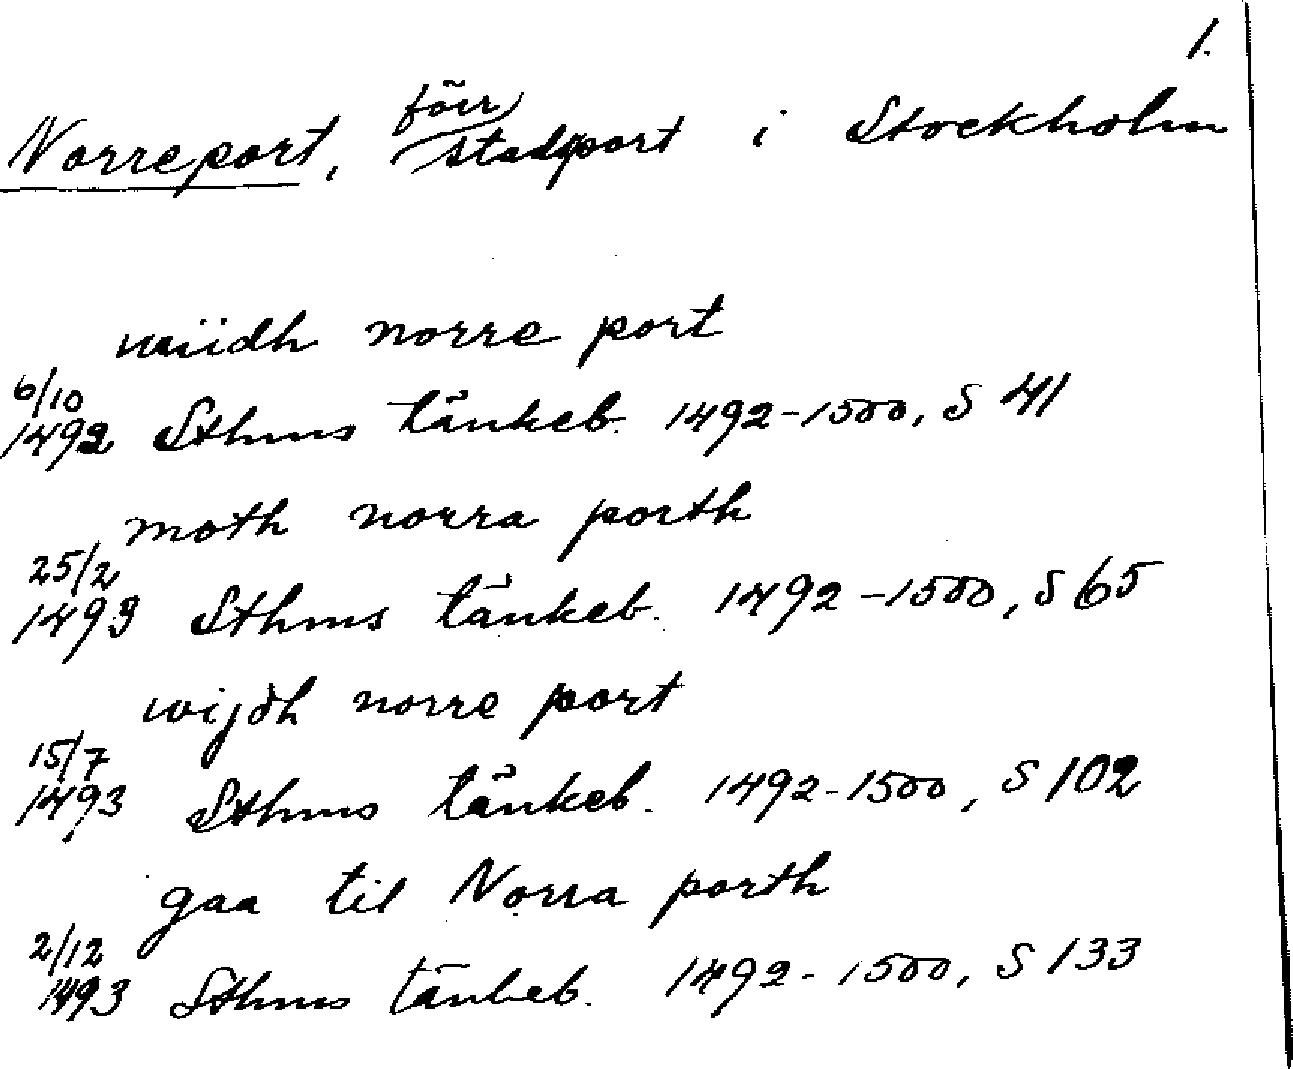 1.
Norreport, förr stadsport i Stockholm
norre port
6/10
1492 Sthms tänkeb. 1492-1500, S 41
moth norra porth
25/2
1493 Sthms tänkeb. 1492-1500, S 65
wijdh norre port
15/7
1493 Sthms tänkeb. 1492-1500, S 102
gaa til Norra porth
2/12
1493 Sthms tänkeb. 1492-1500, S 133